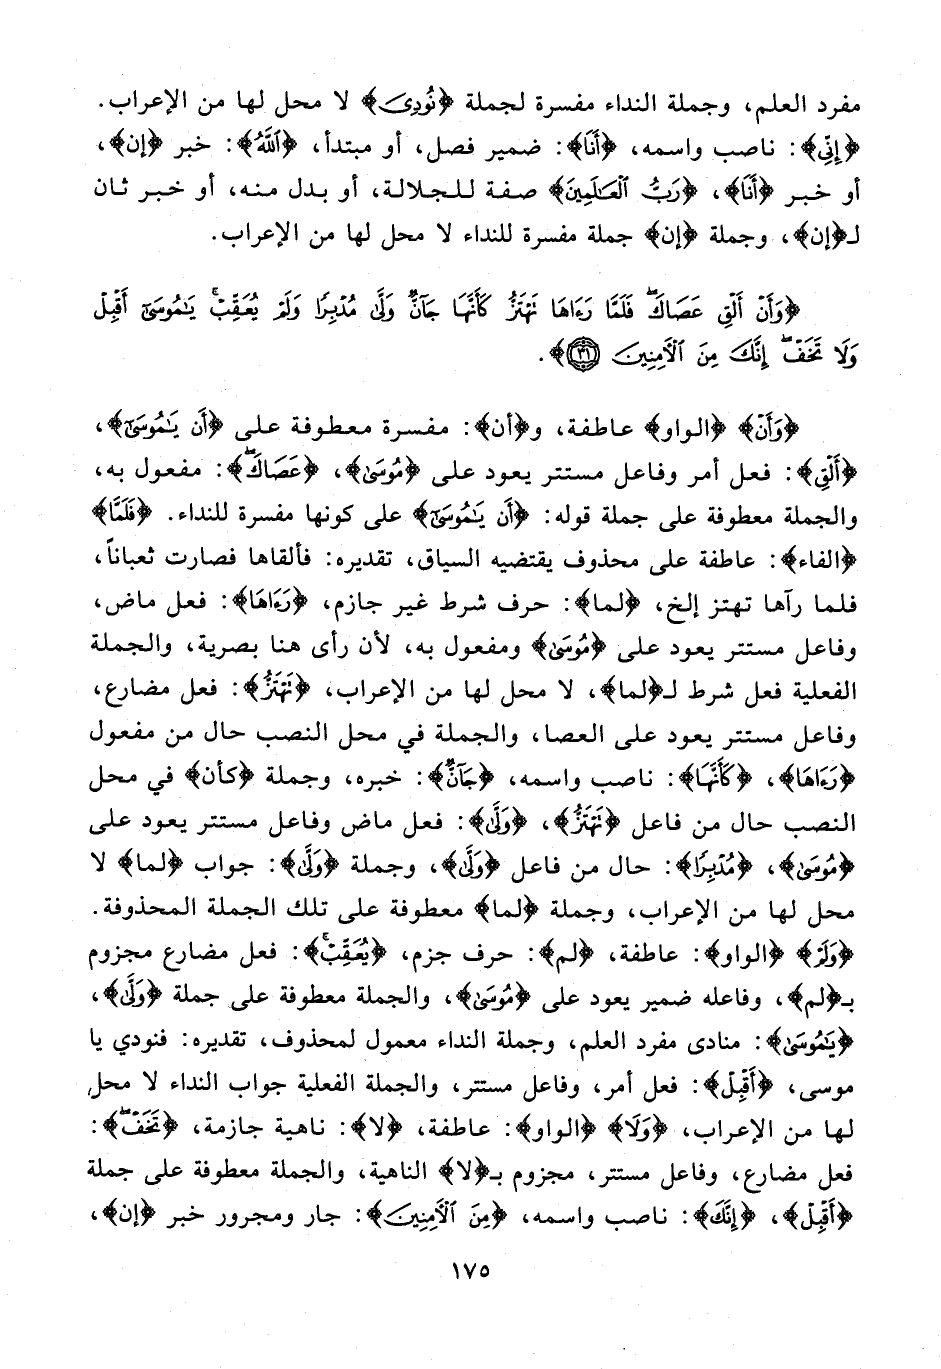 مفرد العلم، وجملة النداء مفسرة لجملة ﴿نُودِىَ﴾ لا محل لها من الإعراب.
﴿إِنِّى﴾: ناصب واسمه، ﴿أَنَا﴾: ضمير فصل، أو مبتدأ، ﴿ٱللَّهُ﴾: خبر ﴿إن﴾،
أو خبر ﴿أَنَا﴾، ﴿رَبُّ ٱلْعَـٰلَمِينَ﴾ صفة للجلالة، أو بدل منه، أو خبر ثان
لـ﴿إن﴾، وجملة ﴿إن﴾ جملة مفسرة للنداء لا محل لها من الإعراب.
﴿وَأَنْ أَلْقِ عَصَاكَۖ فَلَمَّا رَءَاهَا تَهْتَزُّ كَأَنَّهَا جَآنٌّ وَلَّىٰ مُدْبِرًا وَلَمْ يُعَقِّبْۚ يَـٰمُوسَىٰٓ أَقْبِلْ
وَلَا تَخَفْۖ إِنَّكَ مِنَ ٱلْـَٔامِنِينَ ٣١﴾.
﴿وَأَنْ﴾ ﴿الواو﴾ عاطفة، و﴿أن﴾: مفسرة معطوفة على ﴿أَن يَـٰمُوسَىٰٓ﴾،
﴿أَلْقِ﴾: فعل أمر وفاعل مستتر يعود على ﴿مُوسَىٰ﴾، ﴿عَصَاكَۖ﴾: مفعول به،
والجملة معطوفة على جملة قوله: ﴿أَن يَـٰمُوسَىٰٓ﴾ على كونها مفسرة للنداء. ﴿فَلَمَّا﴾
﴿الفاء﴾: عاطفة على محذوف يقتضيه السياق، تقديره: فألقاها فصارت ثعباناً،
فلما رآها تهتز إلخ، ﴿لما﴾: حرف شرط غير جازم، ﴿رَءَاهَا﴾: فعل ماض،
وفاعل مستتر يعود على ﴿مُوسَىٰ﴾ ومفعول به، لأن رأى هنا بصرية، والجملة
الفعلية فعل شرط لـ﴿لما﴾، لا محل لها من الإعراب، ﴿تَهْتَزُّ﴾: فعل مضارع،
وفاعل مستتر يعود على العصا، والجملة في محل النصب حال من مفعول
﴿رَءَاهَا﴾، ﴿كَأَنَّهَا﴾: ناصب واسمه، ﴿جَآنٌّ﴾: خبره، وجملة ﴿كأن﴾ في محل
النصب حال من فاعل ﴿تَهْتَزُّ﴾، ﴿وَلَّىٰ﴾: فعل ماض وفاعل مستتر يعود على
﴿مُوسَىٰ﴾، ﴿مُدْبِرًا﴾: حال من فاعل ﴿وَلَّىٰ﴾، وجملة ﴿وَلَّىٰ﴾: جواب ﴿لما﴾ لا
محل لها من الإعراب، وجملة ﴿لما﴾ معطوفة على تلك الجملة المحذوفة.
﴿وَلَمْ﴾ ﴿الواو﴾: عاطفة، ﴿لم﴾: حرف جزم، ﴿يُعَقِّبْۚ﴾: فعل مضارع مجزوم
بـ﴿لم﴾، وفاعله ضمير يعود على ﴿مُوسَىٰ﴾، والجملة معطوفة على جملة ﴿وَلَّىٰ﴾،
﴿يَـٰمُوسَىٰ﴾: منادى مفرد العلم، وجملة النداء معمول لمحذوف، تقديره: فنودي يا
موسى، ﴿أَقْبِلْ﴾: فعل أمر، وفاعل مستتر، والجملة الفعلية جواب النداء لا محل
لها من الإعراب، ﴿وَلَا﴾ ﴿الواو﴾: عاطفة، ﴿لا﴾: ناهية جازمة، ﴿تَخَفْۖ﴾:
فعل مضارع، وفاعل مستتر، مجزوم بـ﴿لا﴾ الناهية، والجملة معطوفة على جملة
﴿أَقْبِلْ﴾، ﴿إِنَّكَ﴾: ناصب واسمه، ﴿مِنَ ٱلْـَٔامِنِينَ﴾: جار ومجرور خبر ﴿إن﴾،
١٧٥